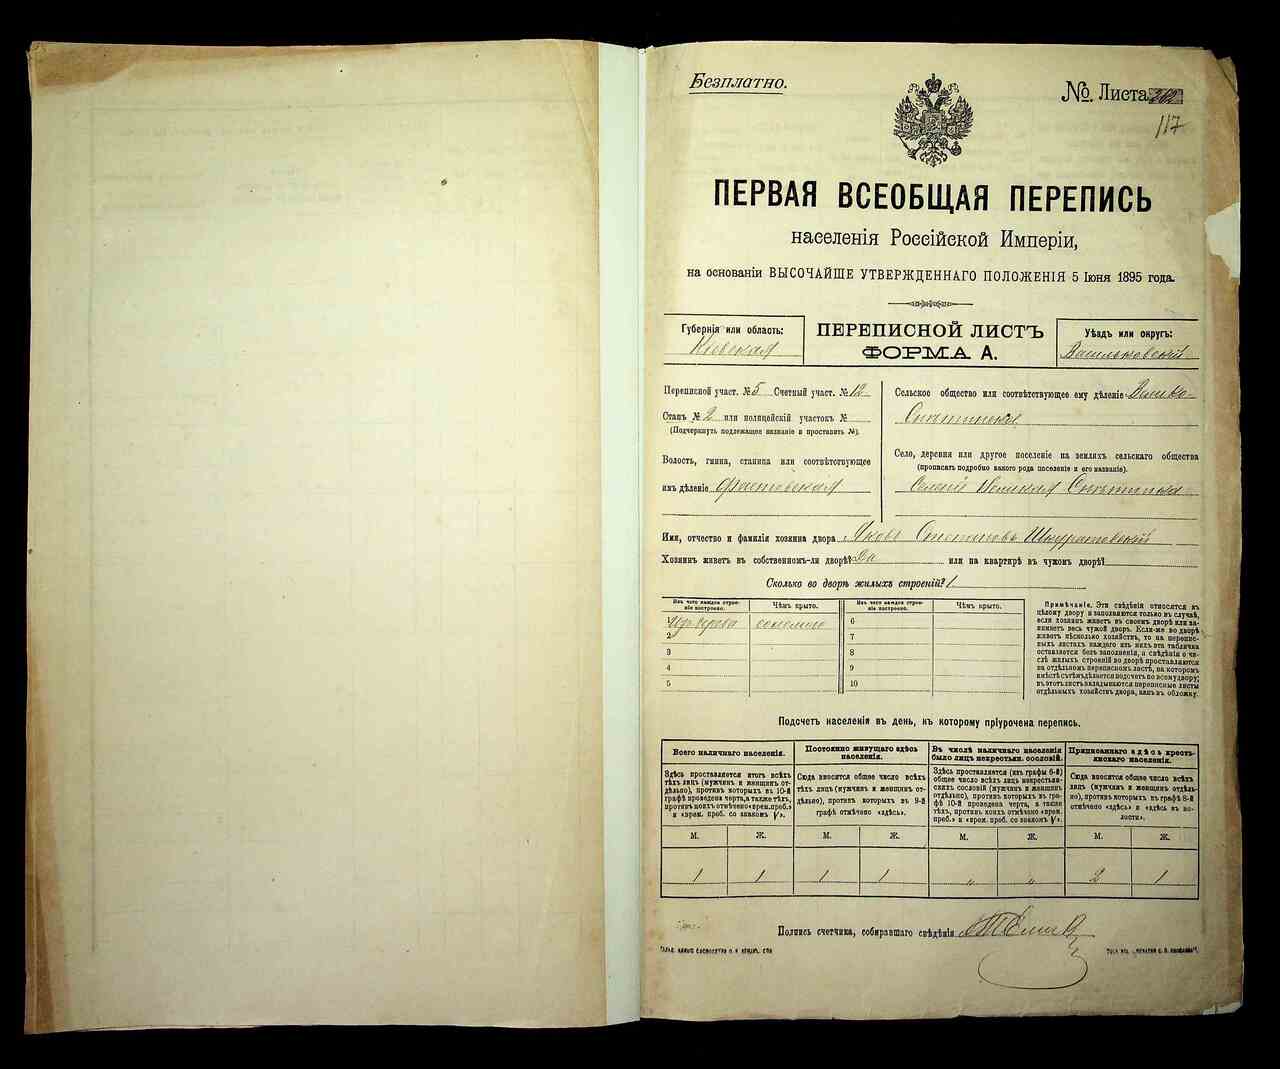 Безплатно.
№. Листа 262
117
ПЕРВАЯ ВСЕОБЩАЯ ПЕРЕПИСЬ
населенія Россійской Имперіи,
на основаніи ВЫСОЧАЙШЕ УТВЕРЖДЕННАГО ПОЛОЖЕНІЯ 5 Іюня 1895 года.
Губернія или область:
Кіевская
ПЕРЕПИСНОЙ ЛИСТЪ
ФОРМА А.
Уѣздъ или округъ:
Васильковскій
Переписной участ. № 5 Счетный участ. № 12
Станъ № 2 или полицейскій участокъ №
(Подчеркнуть подлежащее названіе и проставить №).
Волость, гмина, станица или соотвѣтствующее
имъ дѣленіе Фастовская
Сельское общество или соотвѣтствующее ему дѣленіе Велико-
Снѣтинское
Село, деревня или другое поселеніе на земляхъ сельскаго общества
(прописать подробно какого рода поселеніе и его названіе).
Селеніе Великая Снѣтинка
Имя, отчество и фамилія хозяина двора Яковъ Степановъ Шкуратовскій
Хозяинъ живетъ въ собственномъ-ли дворѣ? Да или на квартирѣ въ чужомъ дворѣ?
Сколько во дворѣ жилыхъ строеній? 1
Изъ чего каждое строеніе построено.
Чѣмъ крыто.
Изъ чего каждое строеніе построено.
Чѣмъ крыто.
1 Изъ дерева соломою
2
3
4
5
6
7
8
9
10
Примѣчаніе. Эти свѣдѣнія относятся къ
цѣлому двору и заполняются только въ случаѣ,
если хозяинъ живетъ въ своемъ дворѣ или занимаетъ
весь чужой дворъ. Если-же во дворѣ
живетъ нѣсколько хозяйствъ, то на переписныхъ
листахъ каждаго изъ нихъ эта табличка
оставляется безъ заполненія, а свѣдѣнія о числѣ
жилыхъ строеній во дворѣ проставляются
на отдѣльномъ переписномъ листѣ, на которомъ
вмѣстѣ съ тѣмъ дѣлается подсчетъ по всему двору;
въ этотъ листъ вкладываются переписные листы
отдѣльныхъ хозяйствъ двора, какъ въ обложку.
Подсчетъ населенія въ день, къ которому пріурочена перепись.
Всего наличнаго населенія.
Здѣсь проставляется итогъ всѣхъ
тѣхъ лицъ (мужчинъ и женщинъ отдѣльно),
противъ которыхъ въ 10-й
графѣ проведена черта, а также тѣхъ,
противъ коихъ отмѣчено «врем. преб.»
и «врем. преб. со знакомъ V».
Постоянно живущаго здѣсь
населенія.
Сюда вносится общее число всѣхъ
тѣхъ лицъ (мужчинъ и женщинъ отдѣльно),
противъ которыхъ въ 9-й
графѣ отмѣчено «здѣсь».
Въ числѣ наличнаго населенія
было лицъ некрестьян. сословій.
Здѣсь проставляется (изъ графы 6-й)
общее число всѣхъ лицъ некрестьянскихъ
сословій (мужчинъ и женщинъ
отдѣльно), противъ которыхъ въ графѣ
10-й проведена черта, а также
тѣхъ, противъ коихъ отмѣчено «врем.
преб.» и «врем. преб. со знакомъ V».
Приписаннаго здѣсь крестьянскаго
населенія.
Сюда вносится общее число всѣхъ
лицъ (мужчинъ и женщинъ отдѣльно),
противъ которыхъ въ графѣ 8-й
отмѣчено «здѣсь» и «здѣсь въ волости».
М. Ж. М. Ж. М. Ж. М. Ж.
1 1 1 1 „ „ 2 1
Подпись счетчика, собиравшаго свѣдѣнія